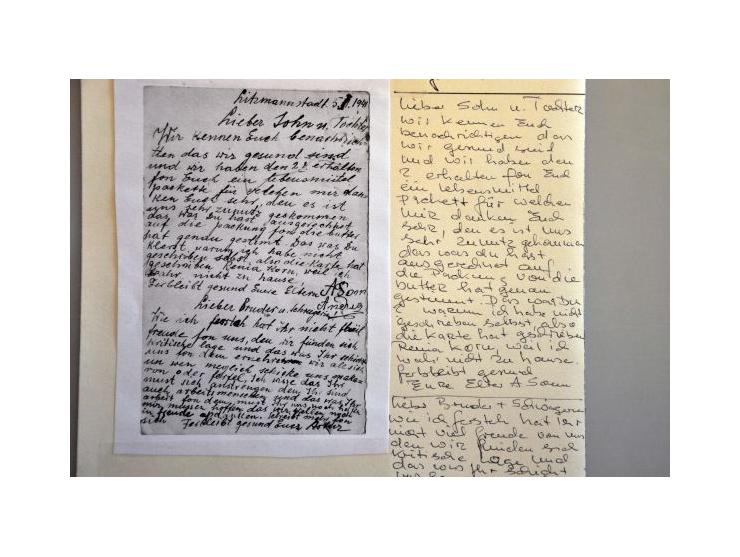 Litzmannstadt 5.
Lieber Sohn u. Tochter
Wir kennen Euch benachrich-
tten das wir gesund sind
und wir haben den 2 erhalten
fon Euch ein lebensmittel
packett für welchen mir dan-
ken Euch sehr, den es ist
uns sehr zunutz gekommen
das was Du hast ausgerechnet
auf die packung fon die butter
hat genau gestimmt Das was Du
warum ich habe nicht
geschrieben selbst, also die Karte hat
geschrieben Renia Korn, weil ich
wahr nicht zu hause.
Ferbleibt gesund Eure Eltern A Sonn
Lieber Bruder u. Schwägerin
Wie ich fersteh hat ihr nicht fiel
freude fon uns, den wir finden sich
kritische lage und das was Ihr schickt
uns fon dem ernehren wir alle sich
un wen meglich schicke uns
oder Ich wisse das Ihr
must sich anstrengen den Ihr sind
auch arbeitsmenschen und das was Ihr
arbeit fon dem must Ihr uns noch helfen
mir missen hoffen das wir
in freude
Ferbleibt gesund Euer Bruder
lieber Sohn u. Tochter
wir kennen Euch
benachrichtigen das
wir gesund seid
und wir haben den
2 erhalten fon Euch
ein lebensmittel
Packett für welchen
mir danken Euch
sehr, den es ist, uns
sehr zunutz gekommen
das was du hast
ausgerechnet auf
die Packung von die
butter hat genau
gestimmt. Das was Du
? warum ich habe nicht
geschrieben selbst, also
die Karte hat geschrieben
Renia Korn weil ich
wahr nicht zu hause.
ferbleibt gesund
Eure Elter A Sonn
lieber Bruder + Schwägerin
wie ich fersteh hat Ihr
nicht viel freude von uns
den wir finden sich
kritische lage und
das was Ihr schickt